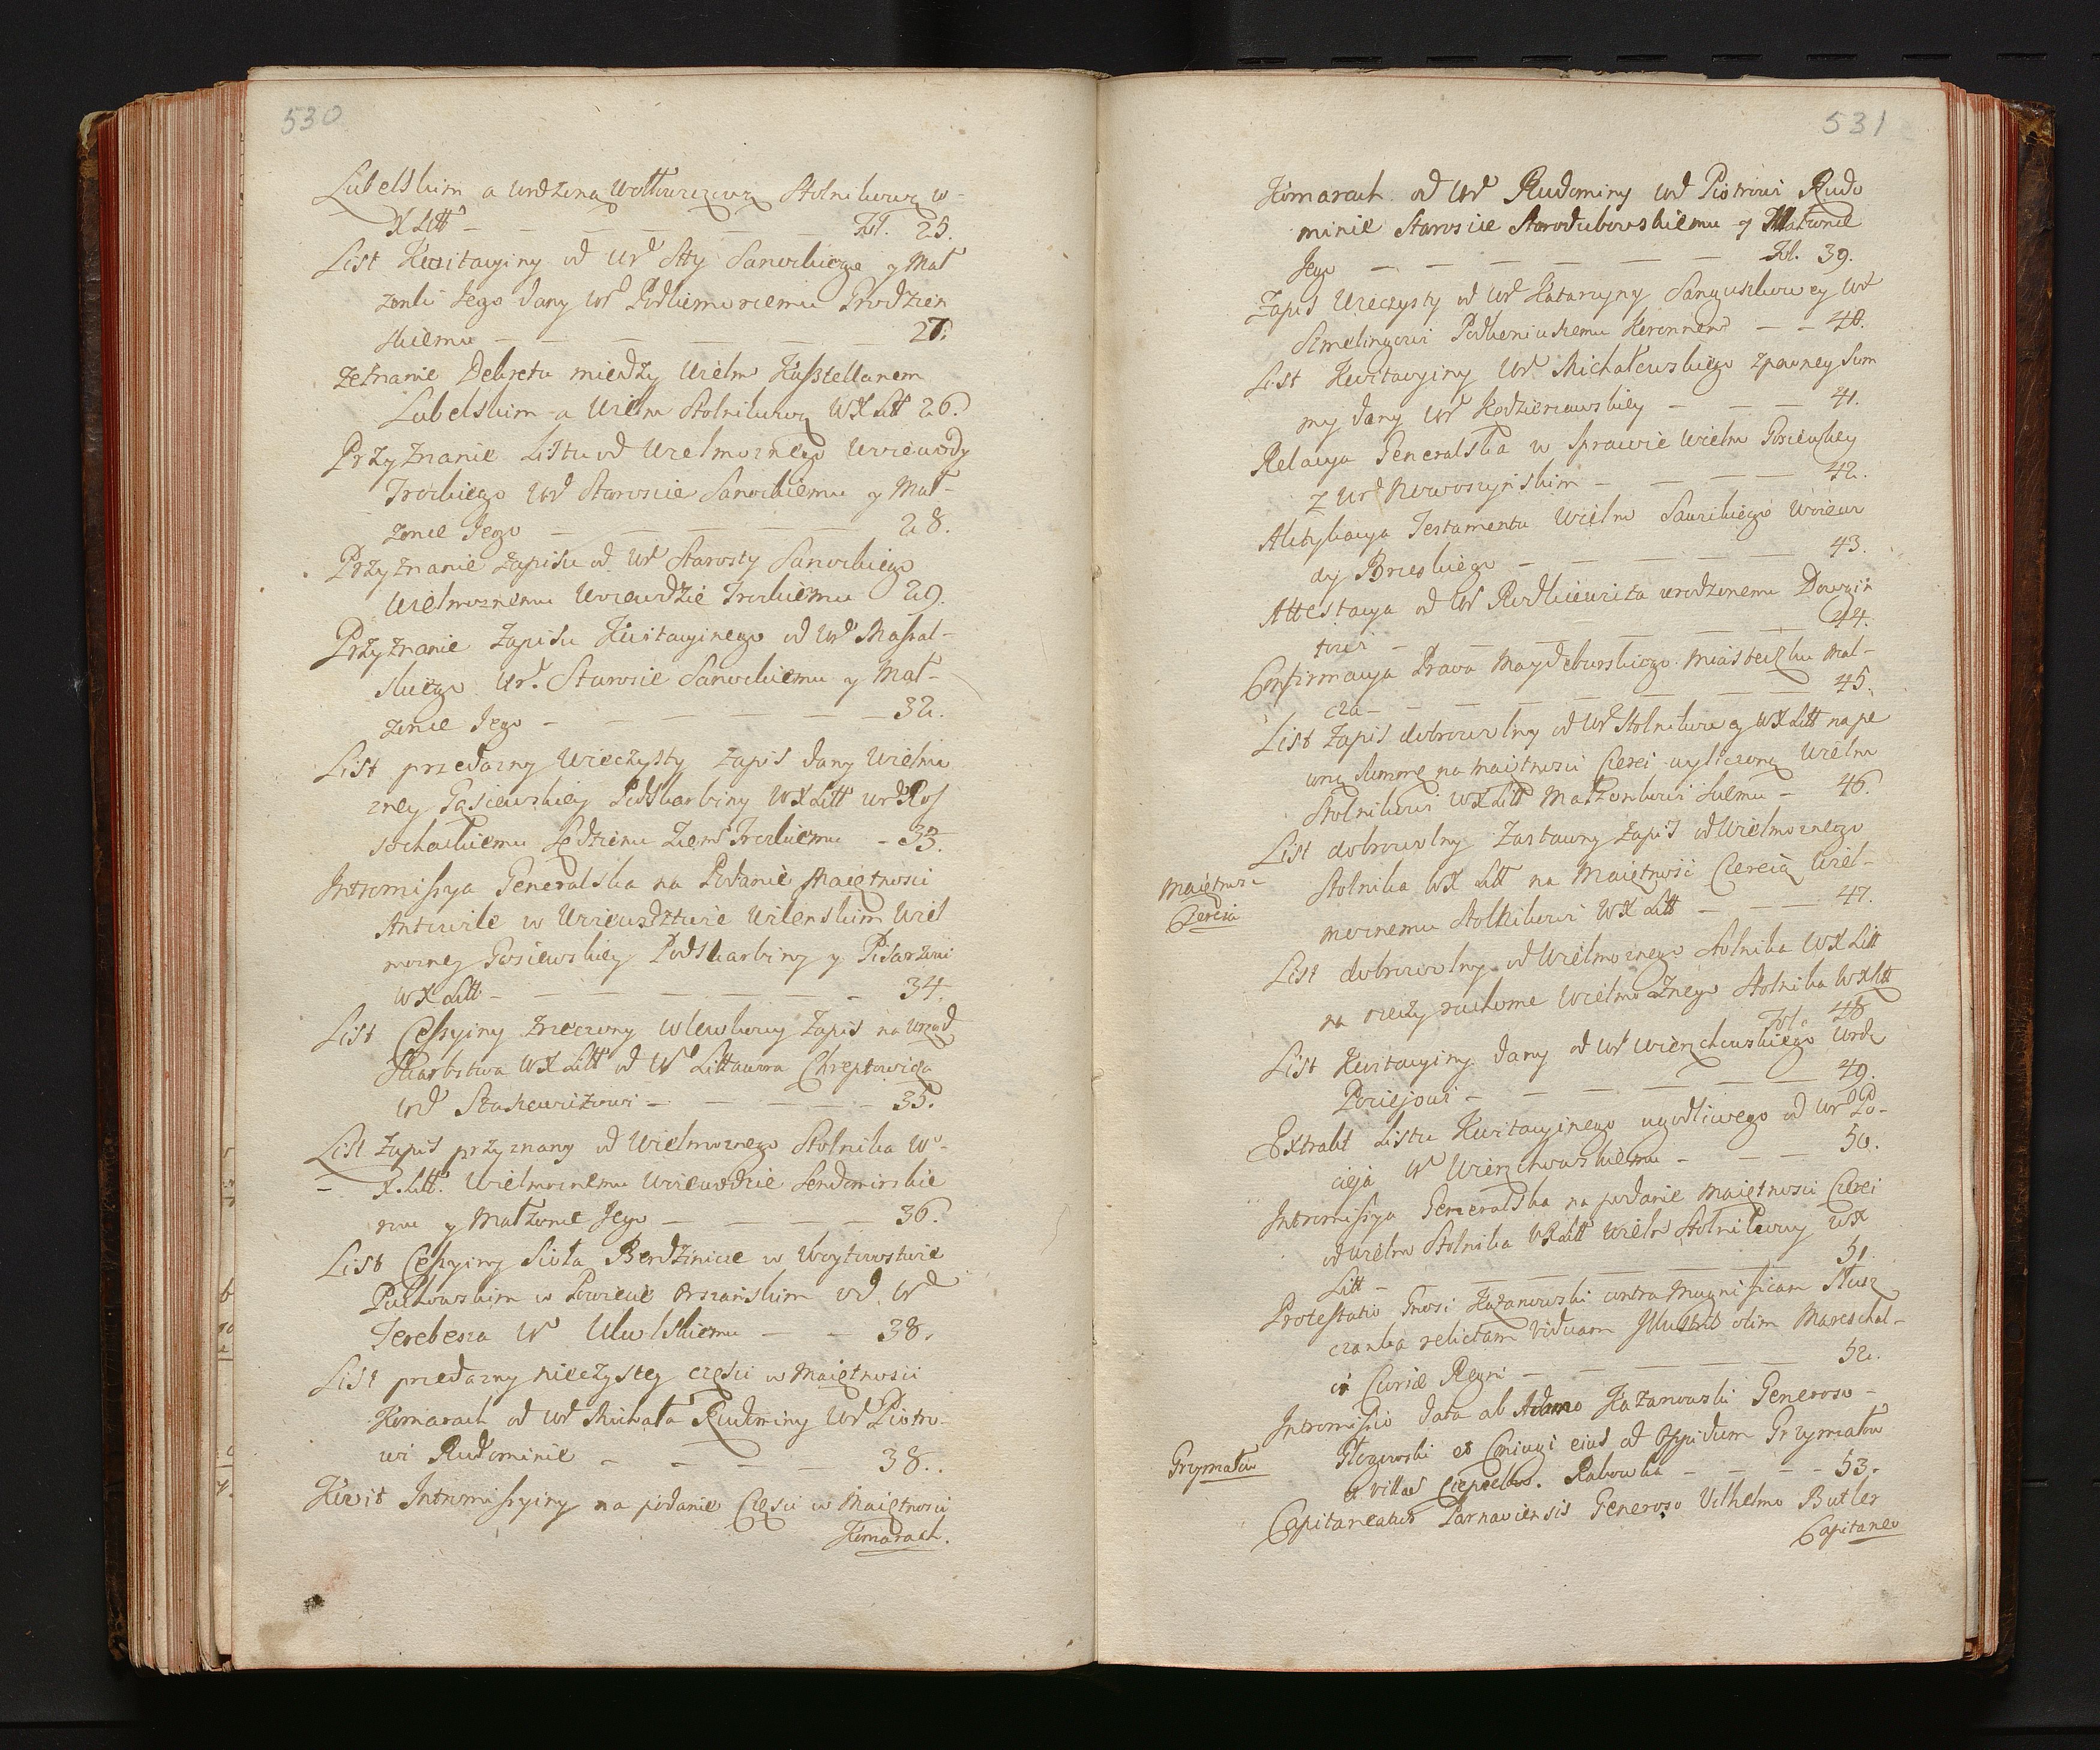 530
Lubelskim a Urodzoną Wołłowiczową Stolnikową W
X Litt Fol. 25.
List Kwitacyiny od Ur Stty Sanockiego y Mał
żonki Jego dany Ur Podkomorzemu Grodzien
skiemu 27.
Zeznanie Dekretu między Wielm Kasztellanem
Lubelskim a Wielm Stolnikową WXLitt 26.
Przyznanie Listu od Wielmożnego Woiewody
Trockiego Ur Staroscie Sanockiemu y Mał-
żonce Jego 28.
Przyznanie Zapisu od Ur Starosty Sanockiego
Wielmoznemu Woiewodzie Trockiemu 29.
Przyznanie Zapisu Kwitacyinego od Ur Maſsal-
skiego Ur. Staroscie Sanockiemu y Mał-
żonce Jego 32.
List przedazny Wieczysty Zapis dany Wielmo
zney Gąsiewskiey Podskarbiny WXLitt Ur Ros
sochackiemu Sędziemu Ziem Trockiemu 33.
Intromiſsya Generalska na Podanie Maiętnosci
Antowile w Woiewodztwie Wilenskim Wiel
mozney Gosiewskiey Podskarbiny y Pisarzowi
WXLitt 34.
List Ceſsyiny Zrzeczony Wlewkowy Zapis na Urząd
Skarbstwa WXLitt od Ur Littawora Chreptowicza
Ur Staszewiczowi 35.
List Zapis przyznany od Wielmoznego Stolnika W
X. Litt. Wielmoznemu Woiewodzie Sendomirskie
mu y Małzonce Jego 36.
List Ceſsyiny Sioła Berdzinicze w Woytowstwie
Pułkowskim w Powiecie Orszańskim od Ur
Terebesza Ur Ulwlskiemu 38.
List przedazny wieczystey części w Maiętnosci
Komarach od Ur Michała Rudominy Ur Piotro-
wi Rudominie 38.
Kwit Intromiſsyiny na podanie Częsci w Maiętnosci
Komarach.
531
Komarach od Ur Rudominy Ur Piotrowi Rudo
minie Staroscie Starodubowskiemu y Małzonce
Jego Fol. 39.
Zapis Wieczysty od Ur Katarzyny Sanguszkowey Ur
Szmelingowi Podkoniuszemu Koronnem 40.
List Kwitacyiny Ur Michałowskiego z pewney Sum
my dany Ur Kodzierzawskiey 41.
Relacya Generalska w Sprawie Wielm Gosiewskey
z Ur Nowoszyńskim 42.
Aktykacya Testamentu Wielm Sawickiego Woiewo
dy Brzeskiego 43.
Attestacya od Ur Rudkiewicza urodzonemu Dowgin
towi 44.
Confirmacya Prawa Maydeburskiego Miasteczku Mal-
cza 45.
List Zapis dobrowolny od Ur Stolnikowey WXLitt na pe
wną Summę na maiętnosci Czerei wyliczoną Wielm
Stolnikowi WXLitt Małzonkowi Swemu 46.
List dobrowolny Zastawny Zapis od Wielmoznego
Maiętnosc
Czereia
Stolnika WX Litt na Maiętność Czereią Wiel-
moznemu Stolnikowi WX Litt 47.
List dobrowolny od Wielmoznego Stolnika WX Litt
na rzeczy ruchome Wielmożnego Stolnika WXLitt
Fol. 48.
List Kwitacyiny dany od Ur Wierzchowskiego Urdz
Pociejowi 49.
Extrakt Listu Kwitacyinego ugodliwego od Ur Po-
cieja Ur Wierzchowskiemu 50.
Intromiſsya Generalska na podanie maiętnosci Czerei
od Wielm Stolnika WXLitt Wielm Stolnikowy WX
Litt 51.
Proteſtatio Gnosi Kazanowski contra Magnificam Słusz
czanka relictam Viduam Illustris olim Mareschal-
ci Curiæ Regni 52.
Intromiſsio data ab Adamo Kazanowski Generoso
Grzymałow
Głogowski et Coniugi eius ad Oppidum Grzymałow
et villas Ciepielow. Rakowka 53.
Capitaneatus Parnaviensis Generoso Vilhelmo Butler
Capitaneo